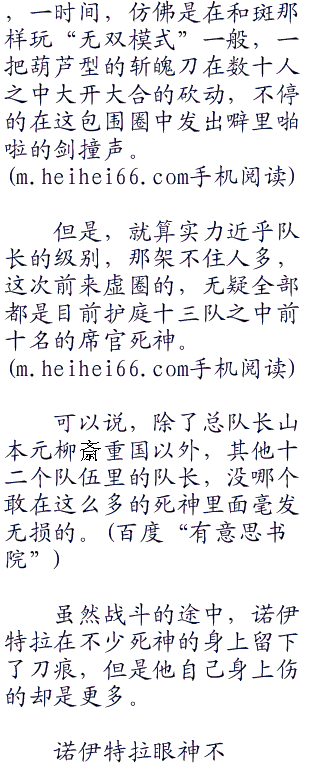 ，一时间，仿佛是在和斑那
样玩“无双模式”一般，一
把葫芦型的斩魄刀在数十人
之中大开大合的砍动，不停
的在这包围圈中发出噼里啪
啦的剑撞声。
(m.heihei66.com手机阅读)
但是，就算实力近乎队
长的级别，那架不住人多，
这次前来虚圈的，无疑全部
都是目前护庭十三队之中前
十名的席官死神。
(m.heihei66.com手机阅读)
可以说，除了总队长山
本元柳斎重国以外，其他十
二个队伍里的队长，没哪个
敢在这么多的死神里面毫发
无损的。(百度“有意思书
院”)
虽然战斗的途中，诺伊
特拉在不少死神的身上留下
了刀痕，但是他自己身上伤
的却是更多。
诺伊特拉眼神不